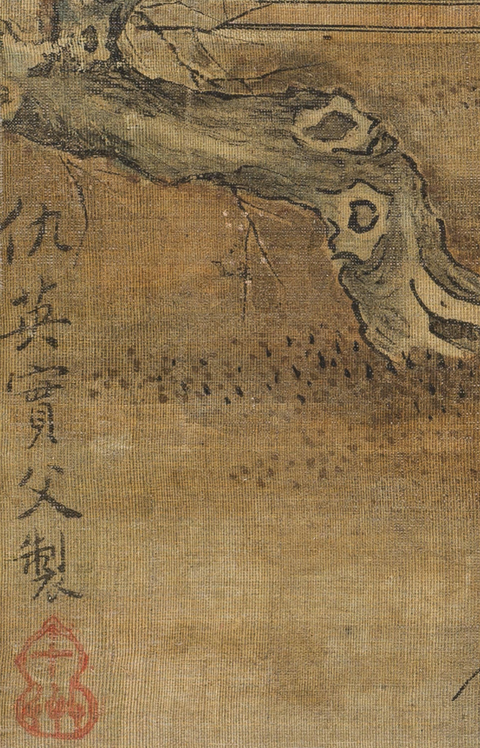 仇英實父製
十洲